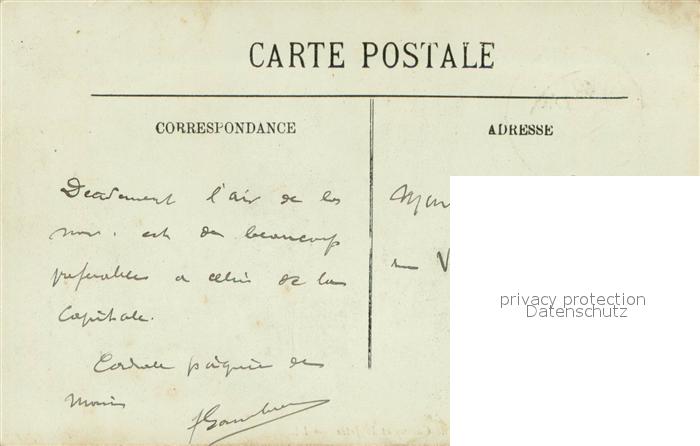 CARTE POSTALE
CORRESPONDANCE
ADRESSE
Decidement l'air de la
mer est de beaucoup
preferable a celui de la
Capitale.
Cordiale poignée de
Mains
privacy protection
Datenschutz